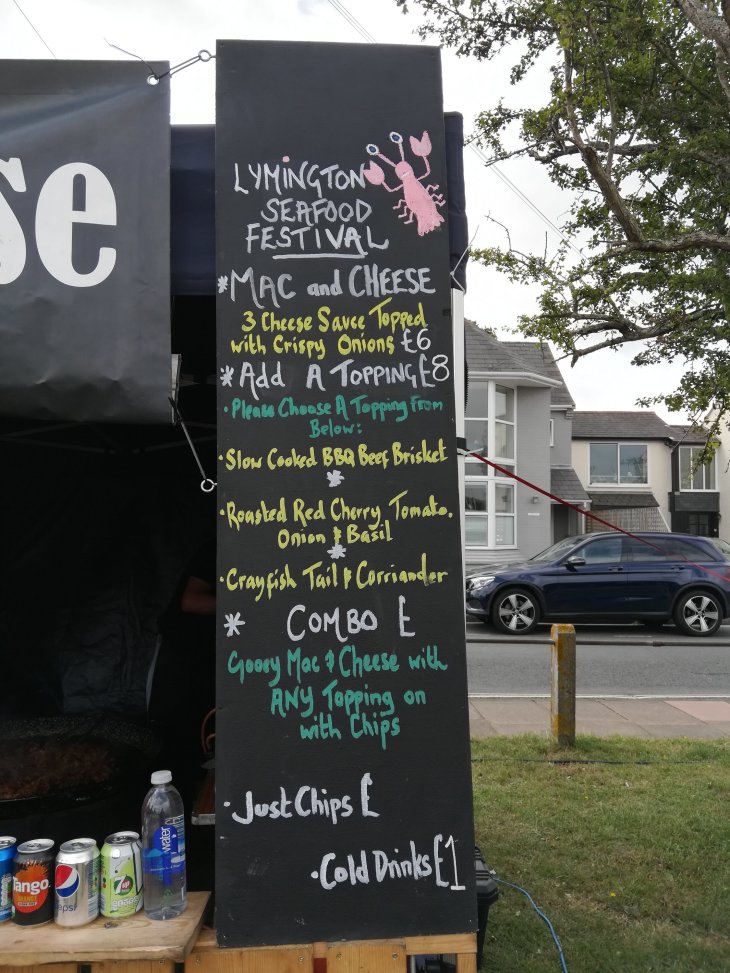 se
LYMINGTON
SEAFOOD
FESTIVAL
*MAC and CHEESE
3 Cheese Sauce Topped
with Crispy Onions £6
*ADD A TOPPING £8
• Please Choose A Topping From
Below:
• Slow Cooked BBQ Beef Brisket
*
• Roasted Red Cherry Tomato,
Onion & Basil
*
• Crayfish Tail & Corriander
* COMBO £
Gooey Mac & Cheese with
ANY Topping on
with Chips
• Just Chips £
• Cold Drinks £1
Tango
ORANGE
pepsi
7up
water